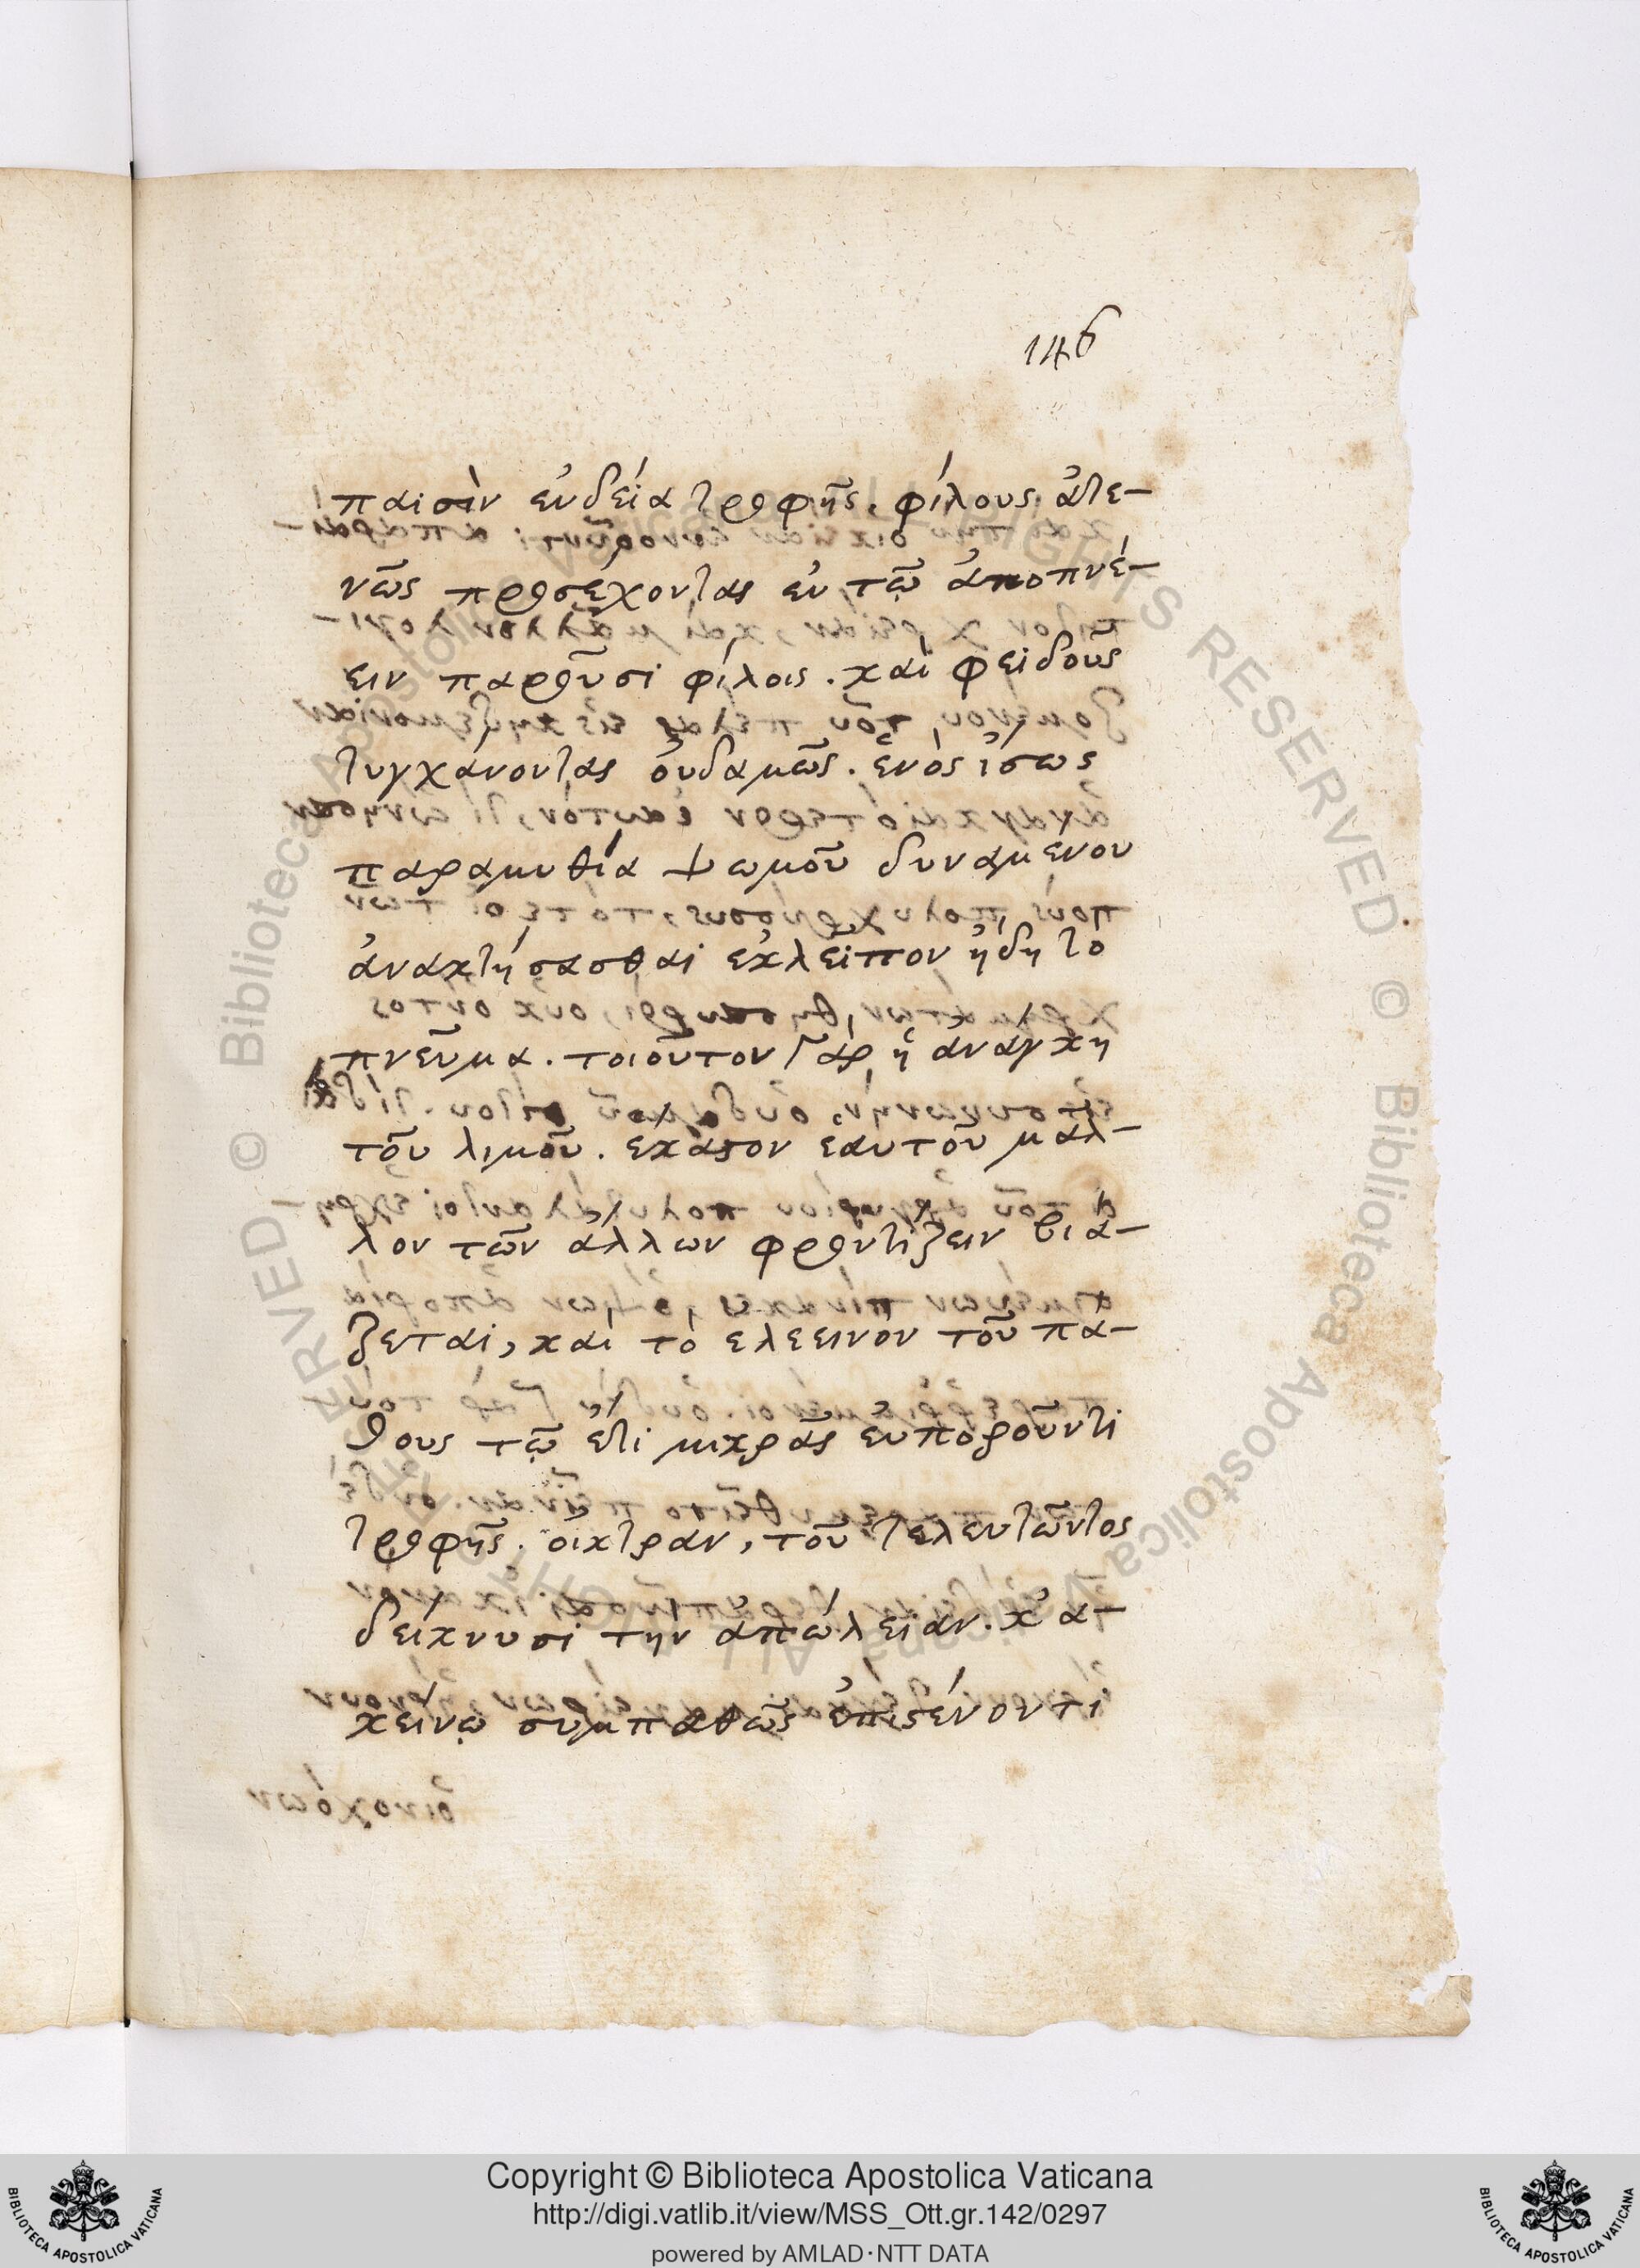 146
παισὶν ἐνδεία τροφῆς. φίλους ἀτε-
νῶς προσέχοντας ἐν τῷ ἀποπνέ-
ειν παροῦσι φίλοις. καὶ φειδοῦς
τυγχάνοντας οὐδαμῶς. ἑνὸς ἴσως
παραμυθία ψωμοῦ δυναμένου
ἀνακτήσασθαι ἐκλεῖπον ἤδη τὸ
πνεῦμα. τοιοῦτον γὰρ ἡ ἀνάγκη
τοῦ λιμοῦ. ἕκαστον ἑαυτοῦ μάλ-
λον τῶν ἄλλων φροντίζειν βιά-
ζεται, καὶ τὸ ἐλεεινὸν τοῦ πά-
θους τῷ ἔτι μικρᾶς εὐποροῦντι
τροφῆς. οἰκτρὰν, τοῦ τελευτῶντος
δείκνυσι τὴν ἀπώλειαν. κἀ-
κείνῳ συμπαθῶς ἐπιστένοντι
Copyright © Biblioteca Apostolica Vaticana
http://digi.vatlib.it/view/MSS_Ott.gr.142/0297
powered by AMLAD·NTT DATA
BIBLIOTECA APOSTOLICA VATICANA
BIBLIOTECA APOSTOLICA VATICANA